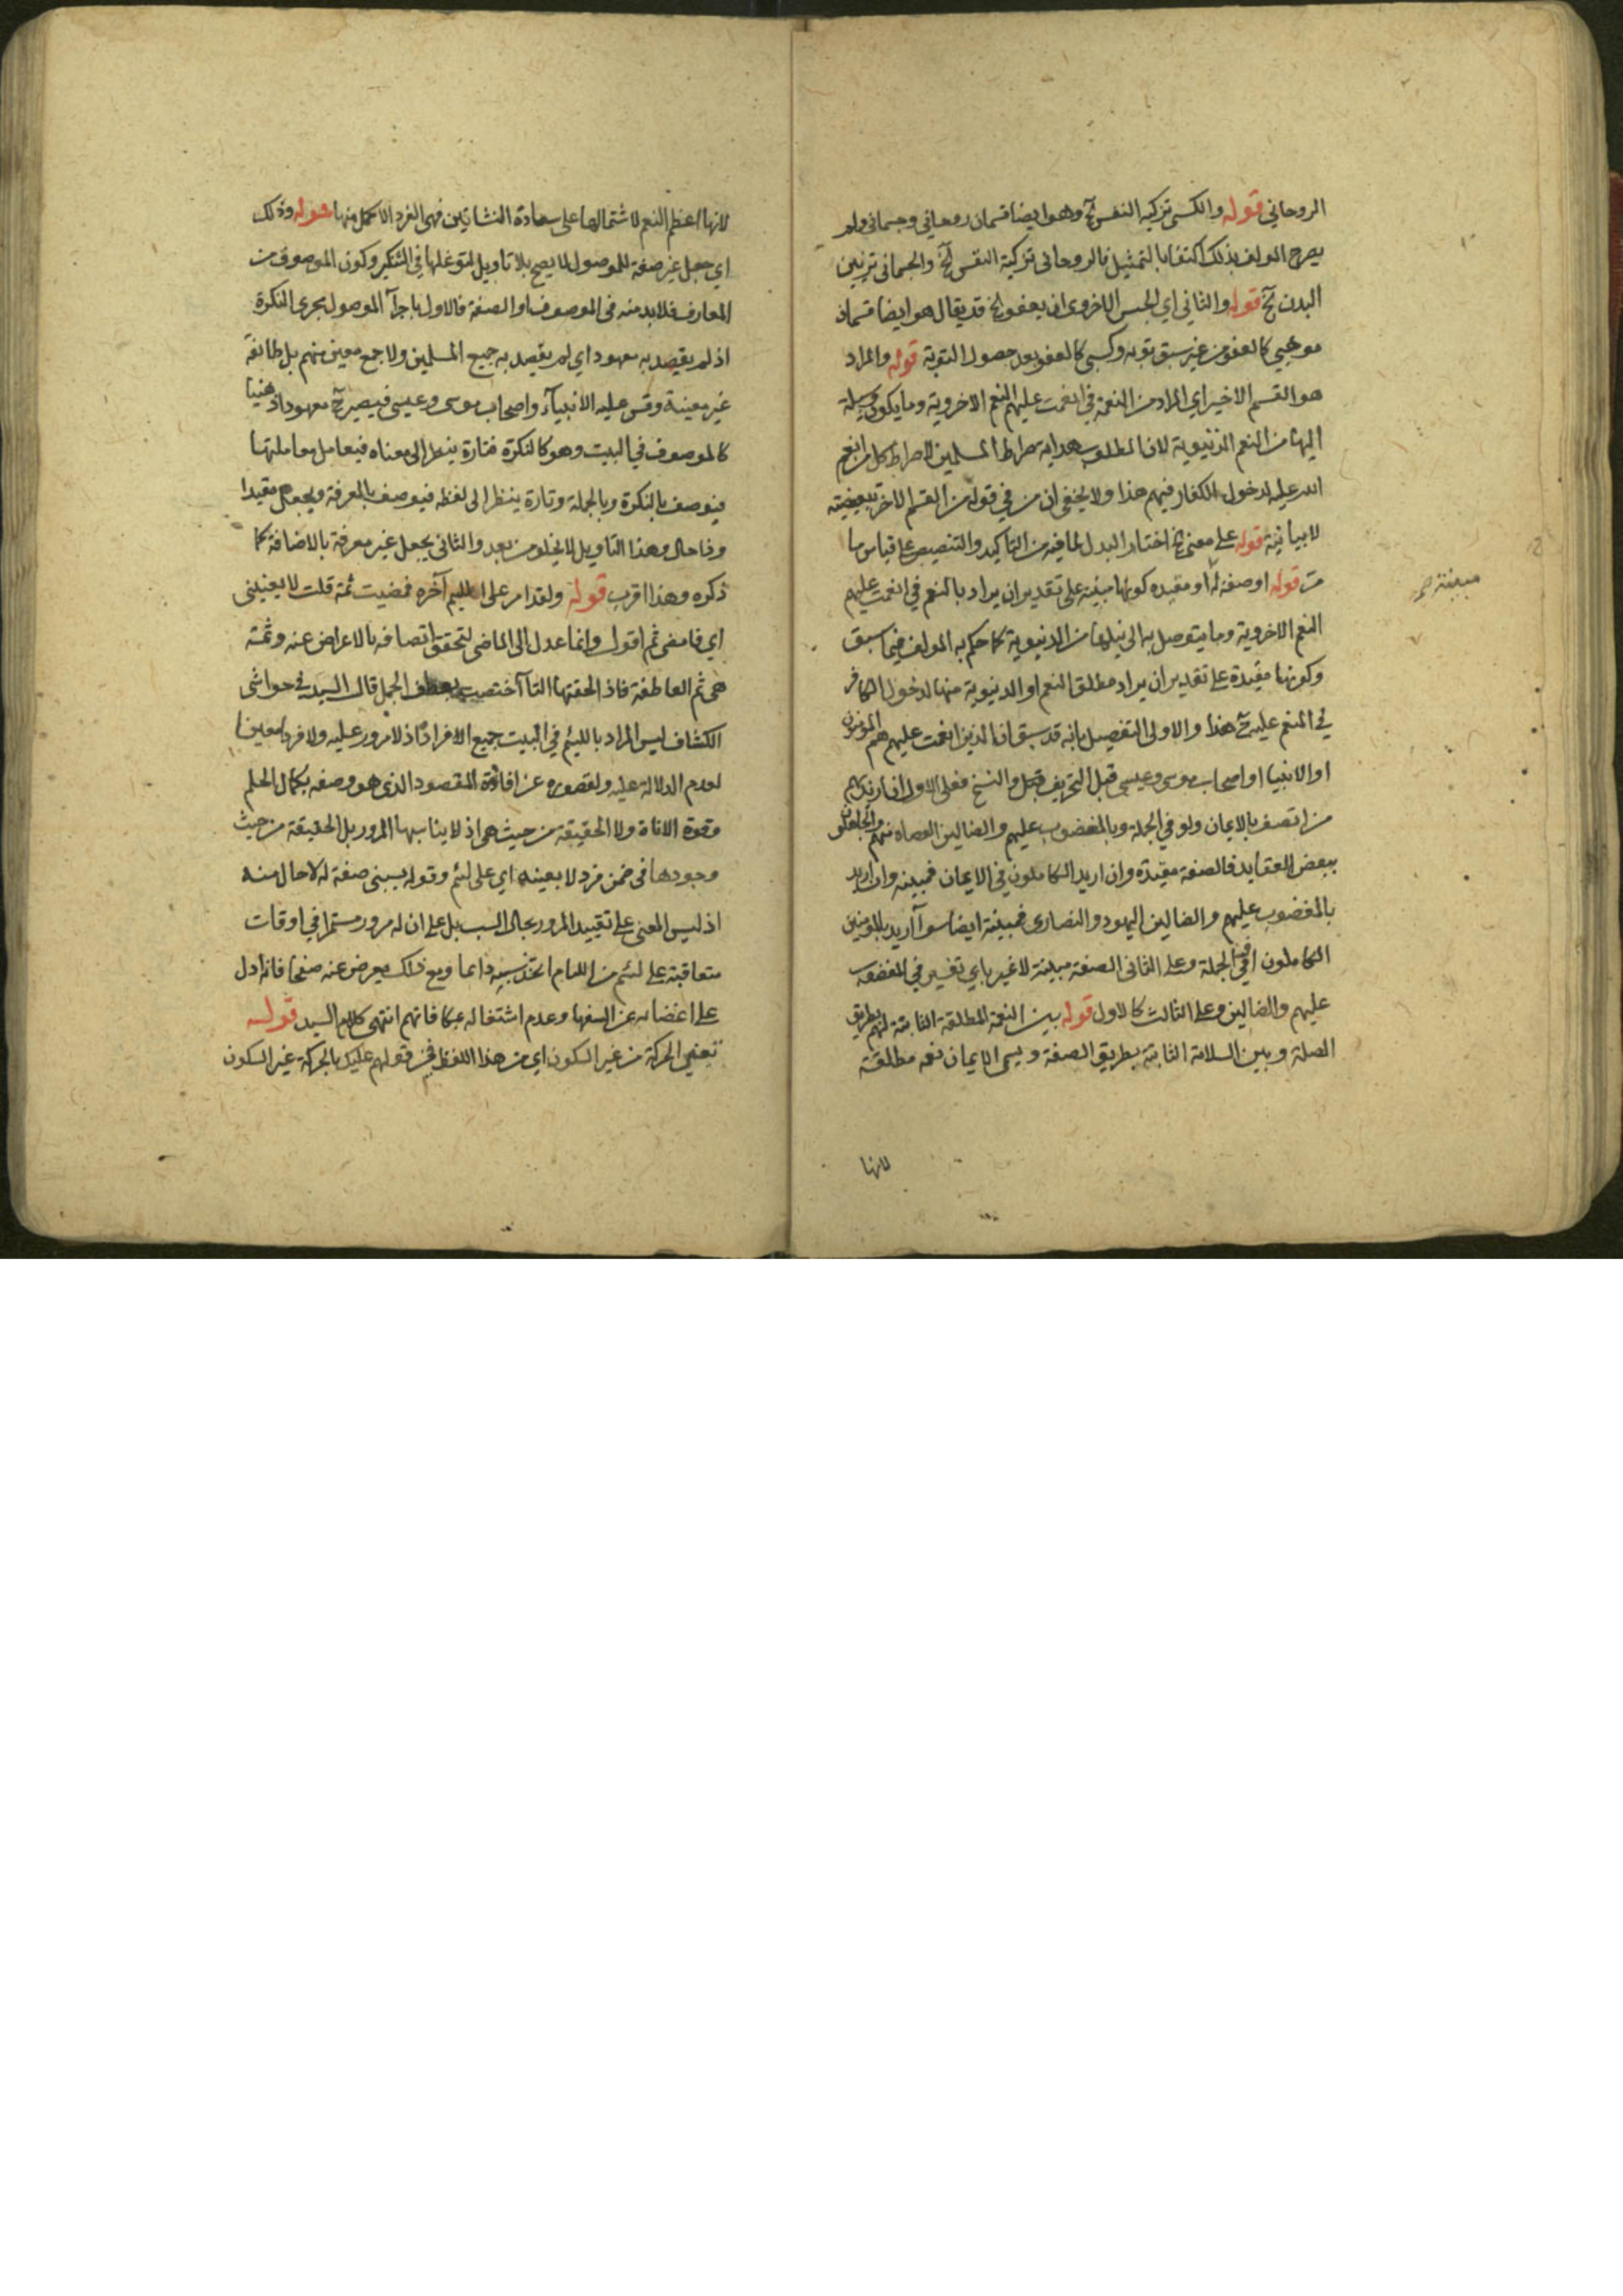 الروحاني قوله والكسبى تزكية النفس الخ وهو ايضا قسمان روحاني وجسماني ولم
يصرح المولف بذلك اكتفا بالتمثيل فالروحانى تزكية النفس الخ والجسمانى تزيين
البدن الخ قوله والثاني اي الجنس الاخروى ان يعفو الخ قد يقال هو ايضا قسمان
موهبي كالعفو من غير سبق توبة وكسبى كالعفو بعد حصول التوبة قوله والمراد
هو القسم الاخير اي المراد من النعمة في انعمت عليهم النعم الاخروية وما يكون وسيلة
اليها من النعم الدنيوية لان المطلوب هداية صراط المسلمين لا صراط كل من انعم
الله عليه لدخول الكفار فيهم هذا ولا يخفى ان من في قوله من القسم الاخر تبعيضية
لا بيانية قوله على معنى الخ اختار البدل لما فيه من التاكيد والتنصيص على قياس ما
مر قوله او صفة له او مقيده كونها مبينة على تقدير ان يراد بالنعم في انعمت عليهم
مبينة صح
النعم الاخروية وما يتوصل به الى نيلها من الدنيوية كما حكم به المولف فيما سبق
وكونها مقيدة على تقدير ان يراد مطلق النعم او الدنيوية منها لدخول الكافر
في المنعم عليه ح هذا والاولى التفصيل بانه قد سبق ان الذين انعمت عليهم هم المومنون
او الانبيا او اصحاب موسى وعيسى قبل التحريف والنسخ فعلى الاول ان اريد بهم
من اتصف بالايمان ولو في الجملة وبالمغضوب عليهم والضالين العصاه منهم والجاهلون
ببعض العقايد فالصفة مقيدة وان اريد الكاملون في الايمان فمبينه وان اريد
بالمغضوب عليهم والضالين اليهود والنصارى فمبينة ايضا سوآ اريد بالمومنين
الكاملون او في الجملة وعلى الثانى الصفة مبينة لا غير باي تفسير في المغضوب
عليهم والضالين وعلى الثالث كالاول قوله بين النعمة المطلقة الثابتة لهم بطريق
الصلة وبين السلامة الثابتة بطريق الصفة ويسمى الايمان نعمة مطلقة
لانها
لانها اعظم النعم لاشتمالها على سعادة النشاتين فهى الفرد الاكمل منها قوله وذلك
اي جعل غير صفة للموصول انما يصح بلا تاويل لتوغلها في التنكير وكون الموصوف من
المعارف فلا بد منه فى الموصوف او الصفة فالاول باجرآ الموصول مجرى النكرة
اذ لم يقصد به معهود اي لم يقصد به جميع المسلمين ولا جمع معين منهم بل طائفة
غير معينة وقس عليه الانبيآء واصحاب موسى وعيسى فيصير ح معهودا ذهنيا
كالموصوف في البيت وهو كالنكرة فتارة ينظر الى معناه فيعامل معاملتها
فيوصف بالنكرة وبالجملة وتارة ينظر الى لفظه فيوصف بالمعرفة ويجعل مقيدا
وذا حال وهذا التاويل لا يخلو من بعد والثانى بجعل غير معرفة بالاضافة كما
ذكره وهذا اقرب قوله ولقد امر على اللئيم آخره فمضيت ثمة قلت لا يعنينى
اي فامضى ثم اقول وانما عدل الى الماضى لتحقق اتصافه بالاعراض عنه وثمة
هى ثم العاطفة فاذا لحقتها التآ اختصت بعطف الجمل قال السيد في حواشى
الكشاف ليس المراد باللئيم في البيت جميع الافراد اذ لا مرور عليه ولا فردا معينا
لعدم الدلالة عليه ولقصوره عن افادة المقصود الذى هو وصفه بكمال الحلم
وقوة الاناة ولا الحقيقة من حيث هى اذ لا يناسبها المرور بل الحقيقة من حيث
وجودها فى ضمن فرد لا بعينه اي على لئيم وقوله يسبنى صفة له لا حال منه
اذ ليس المعنى على تقييد المرور بحال السب بل على ان له مرور مستمرا في اوقات
متعاقبة على لئيم من اللئام اتخذ سبه دائما ومع ذلك يعرض عنه صفحا فانه ادل
على اغضائه عن السفها وعدم اشتغاله بمكافاتهم انتهى كلام السيد قوله
تعين الحركة من غير السكون اي من هذا اللفظ في قولهم عليك بالحركة غير السكون